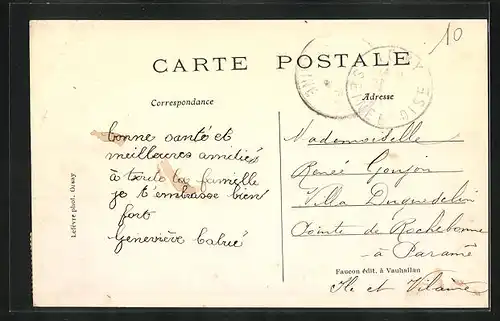 10
CARTE POSTALE
Correspondance
Adresse
SEINE OISE
bonne santé et
meilleures amitiés
à toute la famille
je t'embrasse bien
fort
Geneviève
Mademoiselle
Renée Goujon
Villa Duguesclin
Pointe de Rochebonne
à Paramé
Ile et Vilaine
Lefèvre phot. Orsay
Faucon édit. à Vauhallan